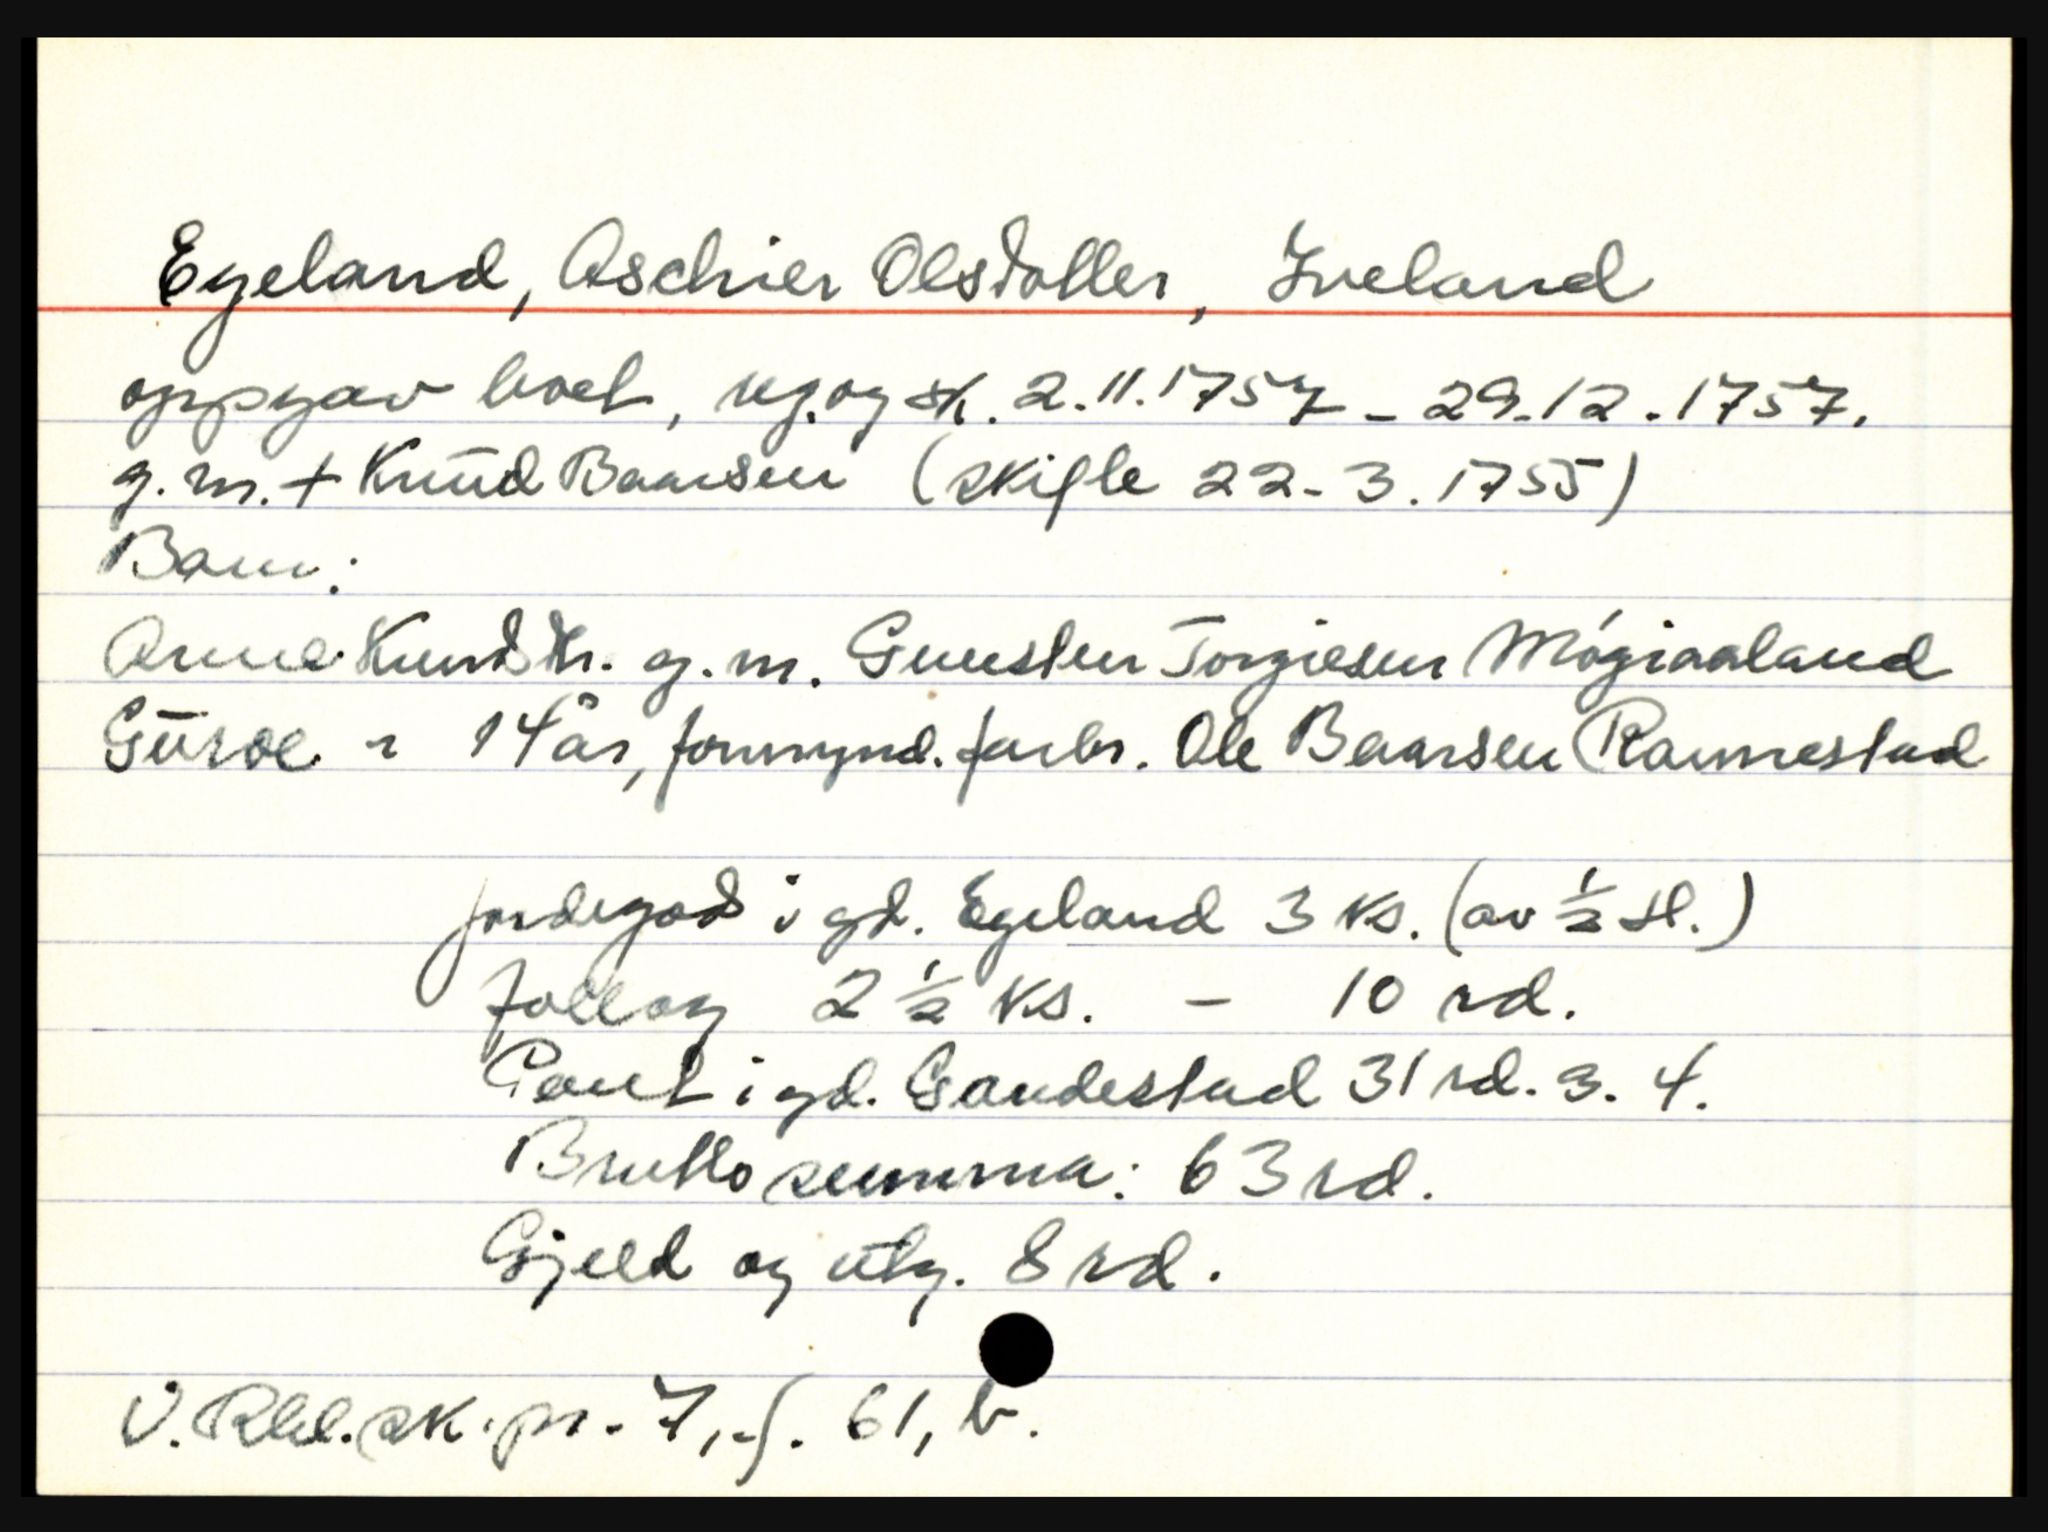 Egeland, Aschier Olsdatter, Iveland
oppgav boet, reg. og sk. 2.11.1757 - 29.12.1757.
g.m. + Knud Baarsen (skifte 22-3.1755)
Barn:
Anne Knudsdtr. g.m. Gunsten Torgiesen Mögraaland
Guroe - 14 år, formynd. farbr. Ole Baarsen Rannestad
jordegods i gd. Egeland 3 ks. (av ½ sl.)
følleog 2 ½ ks. - 10 rd.
Pant i gd. Gaudestad 31 rd. 3. 4.
Brutto summa: 63 rd.
Gjeld og utg. 8 rd.
V. Rbl. sk. pr. 7, f. 61, b.